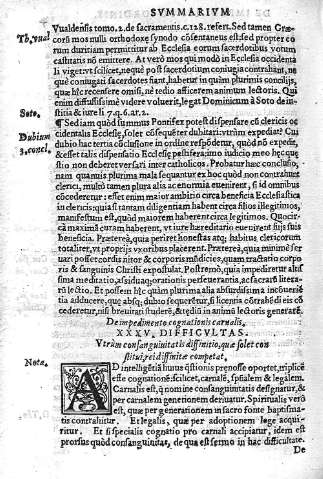 SVMMARIVM
Vualdensis tomo, 2. de sacramentis. c. 128. refert. Sed tamen Græ-
Th, vual
corũ mos nulli orthodoxę synodo cõsentaneus est: sed propter co
rum duritiam permittitur ab Ecclesia eorum sacerdotibus vorum
castitatis nõ emittere. At verò mos qui modò in Ecclesia occidenta
li viget: vt scilicet, neq; post sacerdotium coniugia contrahant, ne
q; coniugati sacerdotes fiant, habetur in quàm plurimis conciliis,
quæ hic recensere omisi, ne tedio afficerem animum lectoris. Qui
enim diffusissimè videre voluerit, legat Dominicũ à Soto de insti-
Soto.
tia & iure li. 7. q. 6. ar. 2.
Dubium
¶ Sed iam quòd summus Pontifex potest dispensare cũ clericis oc
cidentalis Ecclesię, solet cõsequẽter dubitari: vtrùm expediat? Cui
3. concl.
dubio hac tertia cõclusione in ordine respõdetur, quòd nõ expedit,
& esset talis dispensatio Ecclesię pestifera: imo iudicio meo hęc quę
stio non deberet versari inter catholicos. Probatur hæc conclusio,
nam quamuis plurima mala sequantur ex hoc quòd non contrahunt
clerici, multò tamen plura alia ac enormia euenirent, si id omnibus
cõcederetur: esset enim maior ambitio circa beneficia Ecclesiastica
in clericis: quia si tantam diligentiam habent circa filios illegitimos,
manifestum est, quòd maiorem haberent circa legitimos. Quocir-
cà maxima curam haberent, vt iure hæreditario euenirent filijs suis
beneficia. Præterea, quia periret honestas atq; habitus clericorum
totaliter, vt proprijs vxoribus placerent. Præterea, quia minimè ser
uari posset cordis nitor & corporis mūdicies, quam tractatio corpo
ris & sanguinis Christi expostulat. Postremò, quia impediretur altis
sima meditatio, assidua q; orationis perseuerantia, ac sacrarũ litera-
rũ lectio. Et possem hîc quàm plurima alia absurdissima & incõuenie
tia adducere, quę absq; dubio sequerẽtur, si licentia cõtrahẽdi eis cõ
cederetur, nisi breuitari studerẽ, & tędiũ in animũ lectoris generarẽ.
De impedimento cognationis carnalis.
XXXV. DIFFICVLTAS.
Vtrùm consanguinitatis diffinitio, quæ solet con-
stitui, rei diffinitæ competat.
Nota.
AD intelligẽtiã huius q̃stionis prenosse oportet, triplicẽ
esse cognationẽ: scilicet, carnalẽ, spũalem & legalem.
Carnalis est, q̃ nomine consanguinitatis designatur, &
per carnalem generationem deriuatur. Spiritualis verò
est, quæ per generationem in sacro fonte baptisma-
tis contrahitur. Et legalis, quæ per adoptionem lege acqui-
ritur. Et si specialis cognatio pro carnali accipiatur, idem est
prorsus quòd consanguinitas, de qua est sermo in hac difficultate.
De